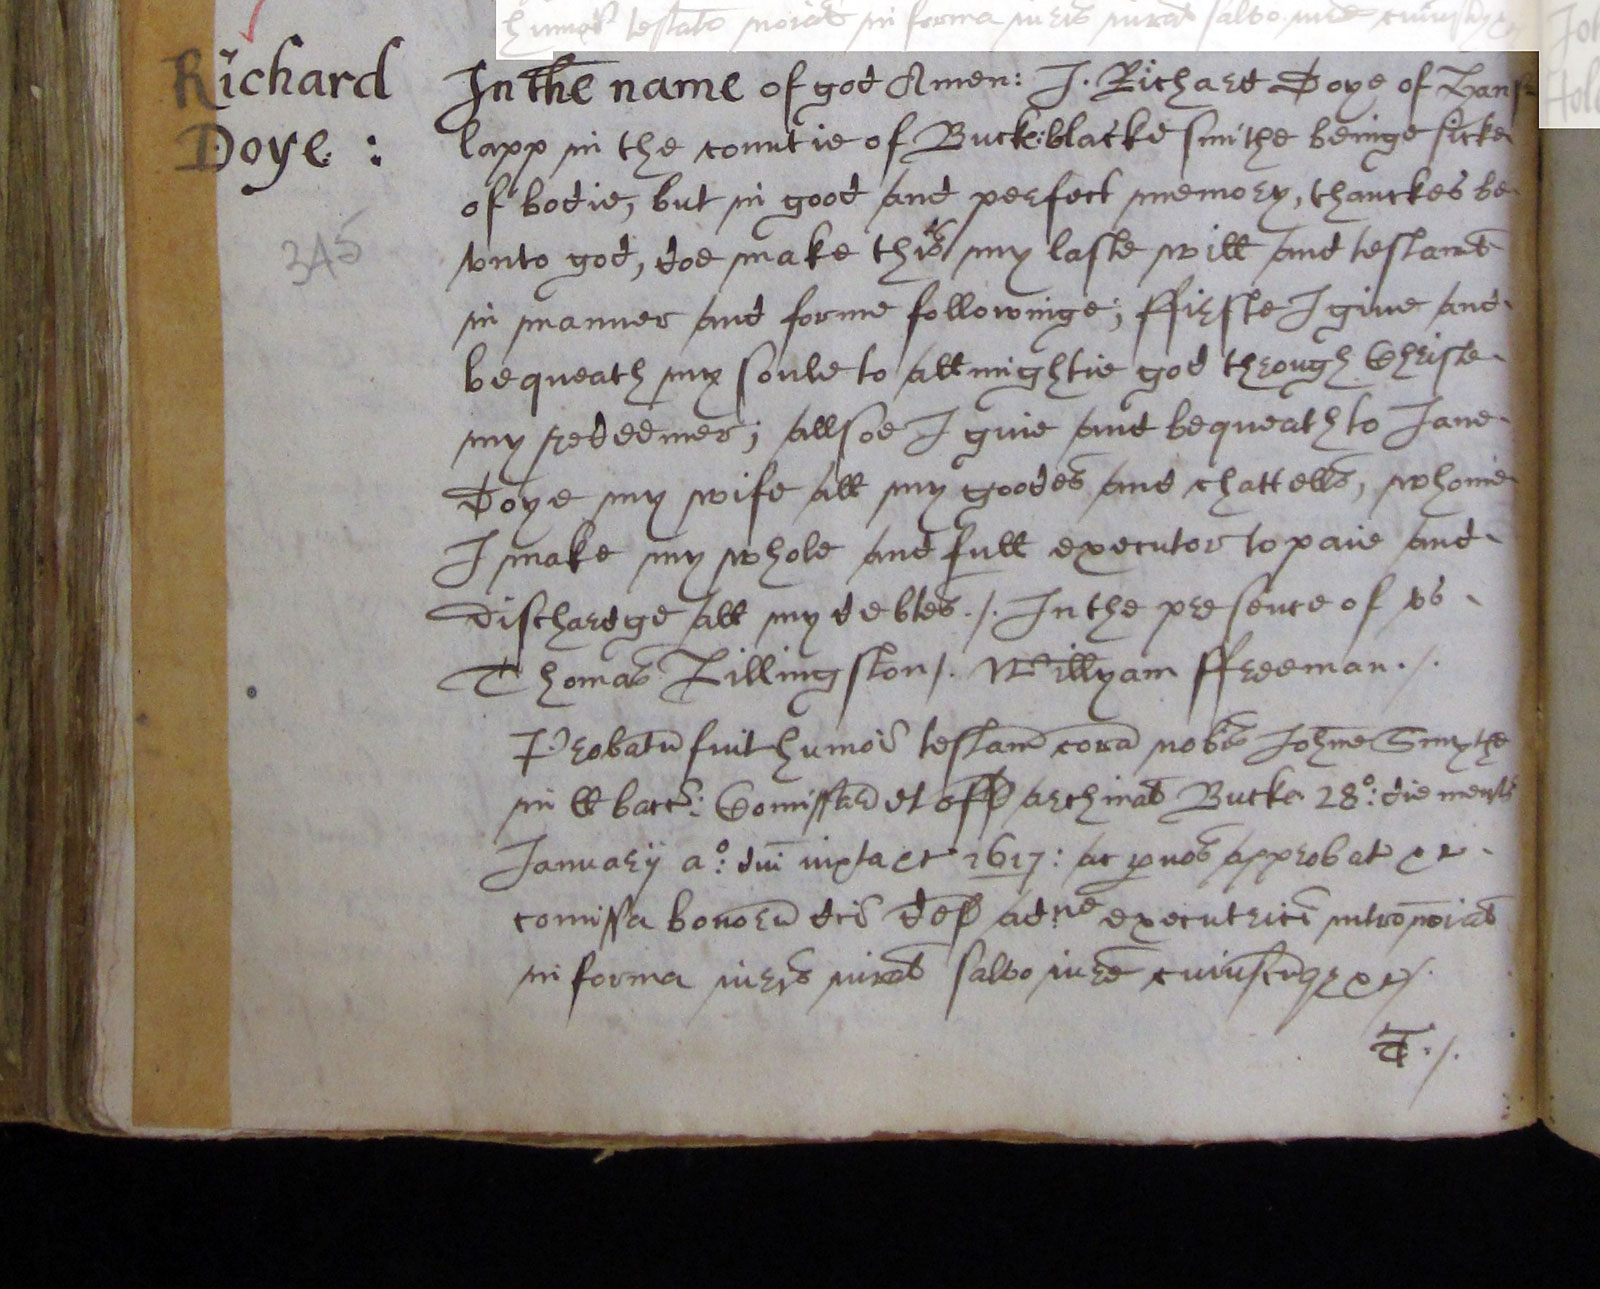 Richard
Doye :
345
In the name of god Amen: I. Richard Doye of Lans=
lapp in the countie of Buck: blacke smithe beinge sicke
of bodie, but in good and perfect memory, thanckes be
vnto god, doe make this my laste will and testamt
in manner and forme followinge; ffirste I giue and
bequeath my soule to allmightie god through Christe
my redeemer; allsoe I giue and bequeath to Jane
Doye my wife all my goodes and chattells, whome
I make my whole and full executor to paie and
dischardge all my debtes ./. In the presence of vs
Thomas Lillingston/. Willyam ffreeman ./.
Probatu fuit humoi testam cora nobis Johne Smythe
in ll bacc: Comissar et off archinat Bucks 28o: die mensis
Januarij ao: dni iuxta &c 1617: ac p nos approbat &c
comissa bonoru dci def adne executrici intronoiat
in forma iuris iurat saluo iure cuiuscuqz &c/.
T ./.